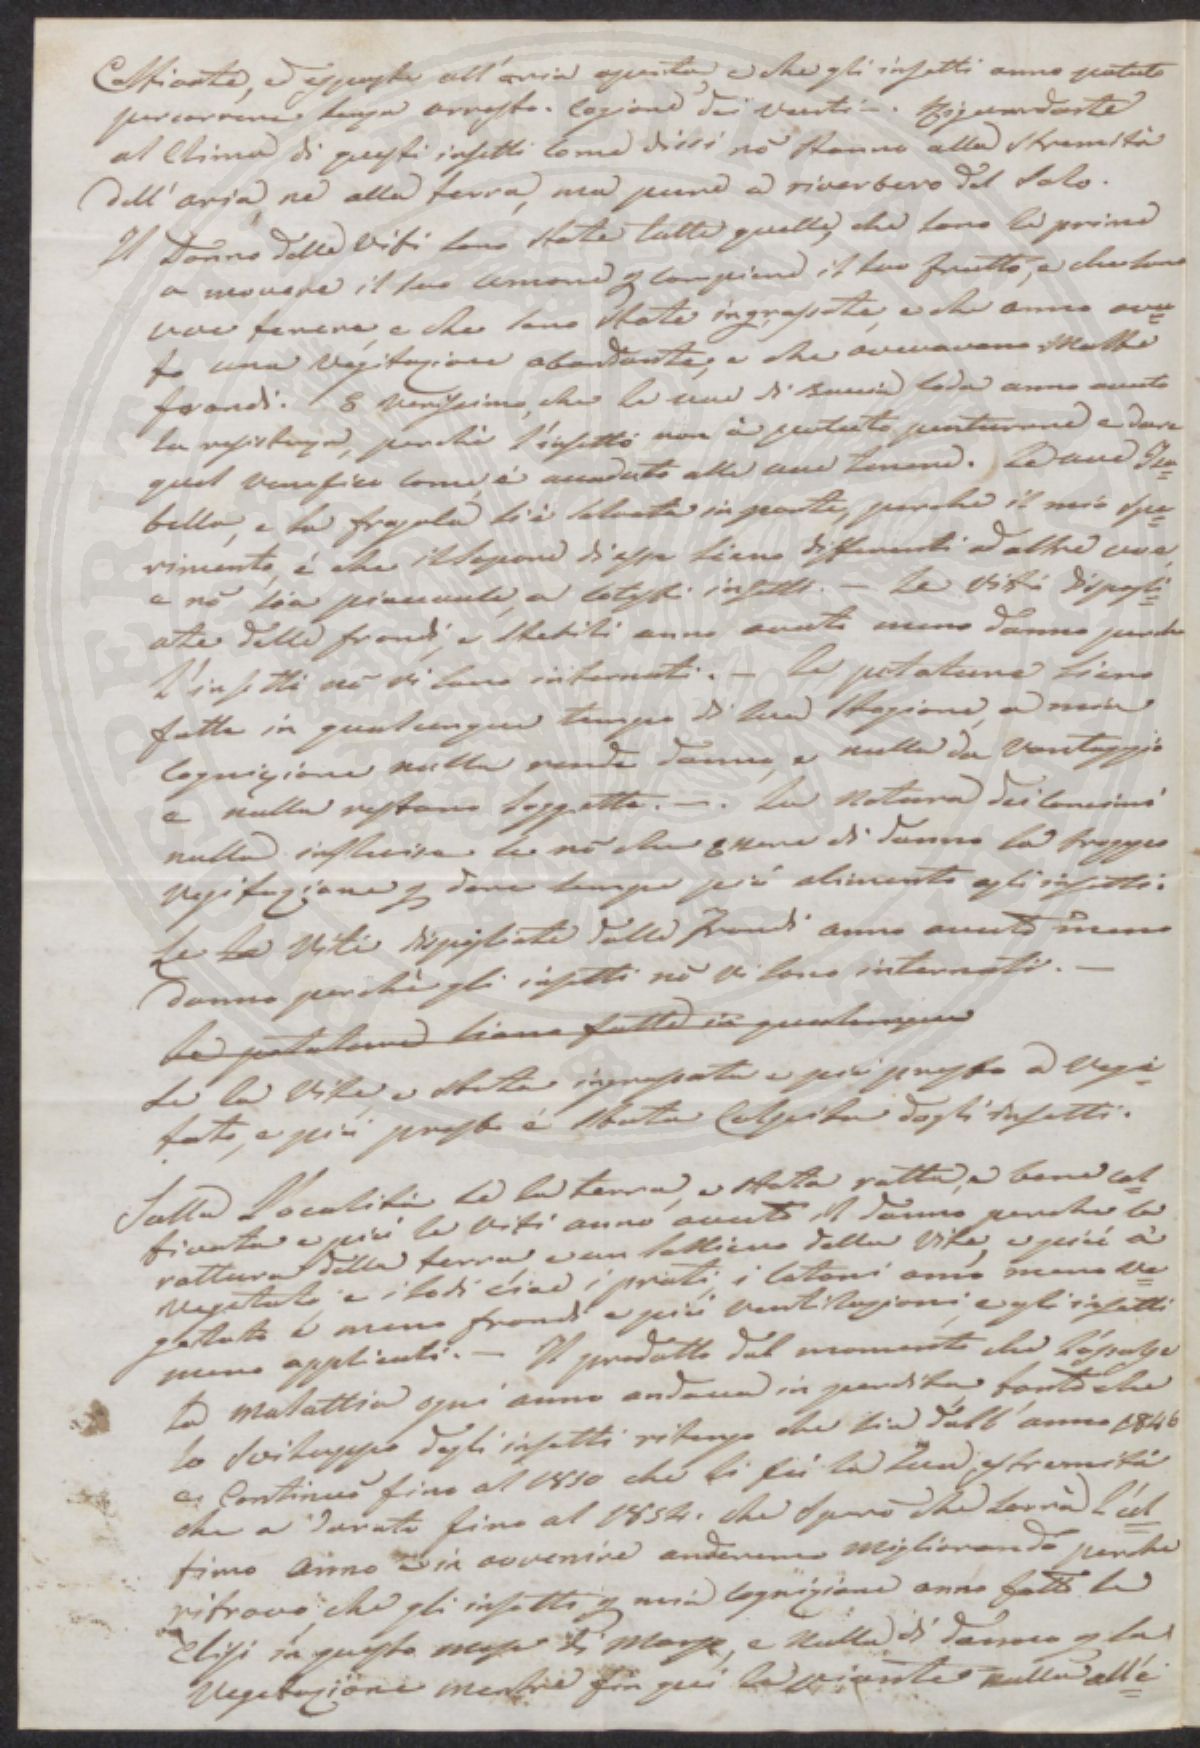 Coltivate, ed esposte all'aria aperta, e che gli insetti anno potuto
percorrere senza arresto. Cagione dei venti –. Riguardante
al Clima di questi insetti come dissi nō stanno alla stremità
dell'aria ne alla terra, ma pure a riverbero del Solo.
Il Danno delle Viti sono state tutte quelle, che sono le prime
a movere il suo umore p compiere il suo frutto, e che sono
uve tenere, e che sono state ingrassate, e che anno avu=
to una vegitazione abondante, e che avevano Molte
frondi. E verissimo, che le uve di buccia soda anno avuto
la resistenza, perchè l'insetto non à potuto penturare e dare
quel venefico come, è accaduto alle uve Tenere. Le uve Isa=
bella, e la fragola si è salvata in parte, perchè il mio spe=
rimento, è che il sapore di esse siano differenti ad altre uve,
e nō sia piaccante, a cotesti insetti. – Le Viti dispogli=
ate delle frondi, e sterili anno avuto meno danno perchè
l'insetti nō vi sono internati. – Le potature siano
fatte in qualunque tempo di sua Stagione, a mia
Cognizione nulla rende danno, e nulla da Vantaggio
e nulla restano soggette. –. La Natura dei concimi
nulla influisce se nō che essere di danno la troppo
Vegitazione p dare sempre più alimento agli insetti.
Se La Viti dispogliate dalle Frondi anno avuto meno
danno perchè gli insetti nō vi sono internati. –
Le potature siano fatte in qualunque
Se la Vite, e stata ingrassata e più presto a Vegi=
tato, e più presto è stata Colpita dagli insetti.
Sulla Località se la terra, e stata rotta, e bene col=
tivata e più le Viti anno avuto il danno perchè la
rottura della terra, e un sollievo della Vite, e più à
Vegetato, e i sodi cioè i prati, i cotoni anno meno ve=
getato e meno frondi e più ventilazioni, e gli insetti
meno applicati. – Il prodotto dal momento che l'assalse
la Malattia ogni anno andava in perdita, tanto che
lo sviluppo degli insetti ritengo che sia dall'anno 1846
e Continuò fino al 1850 che si fù la sua estremità
che a durato fino al 1854. che Sperò che sarrà l'ul=
timo anno e in avvenire anderemo Migliorando perchè
ritrovo, che gli insetti p mia cognizione anno fatto le
Elisi in questo mese di Marzo, e Nulla di danno p la
Vegetazione mentre fin qui le piante nulla all'è